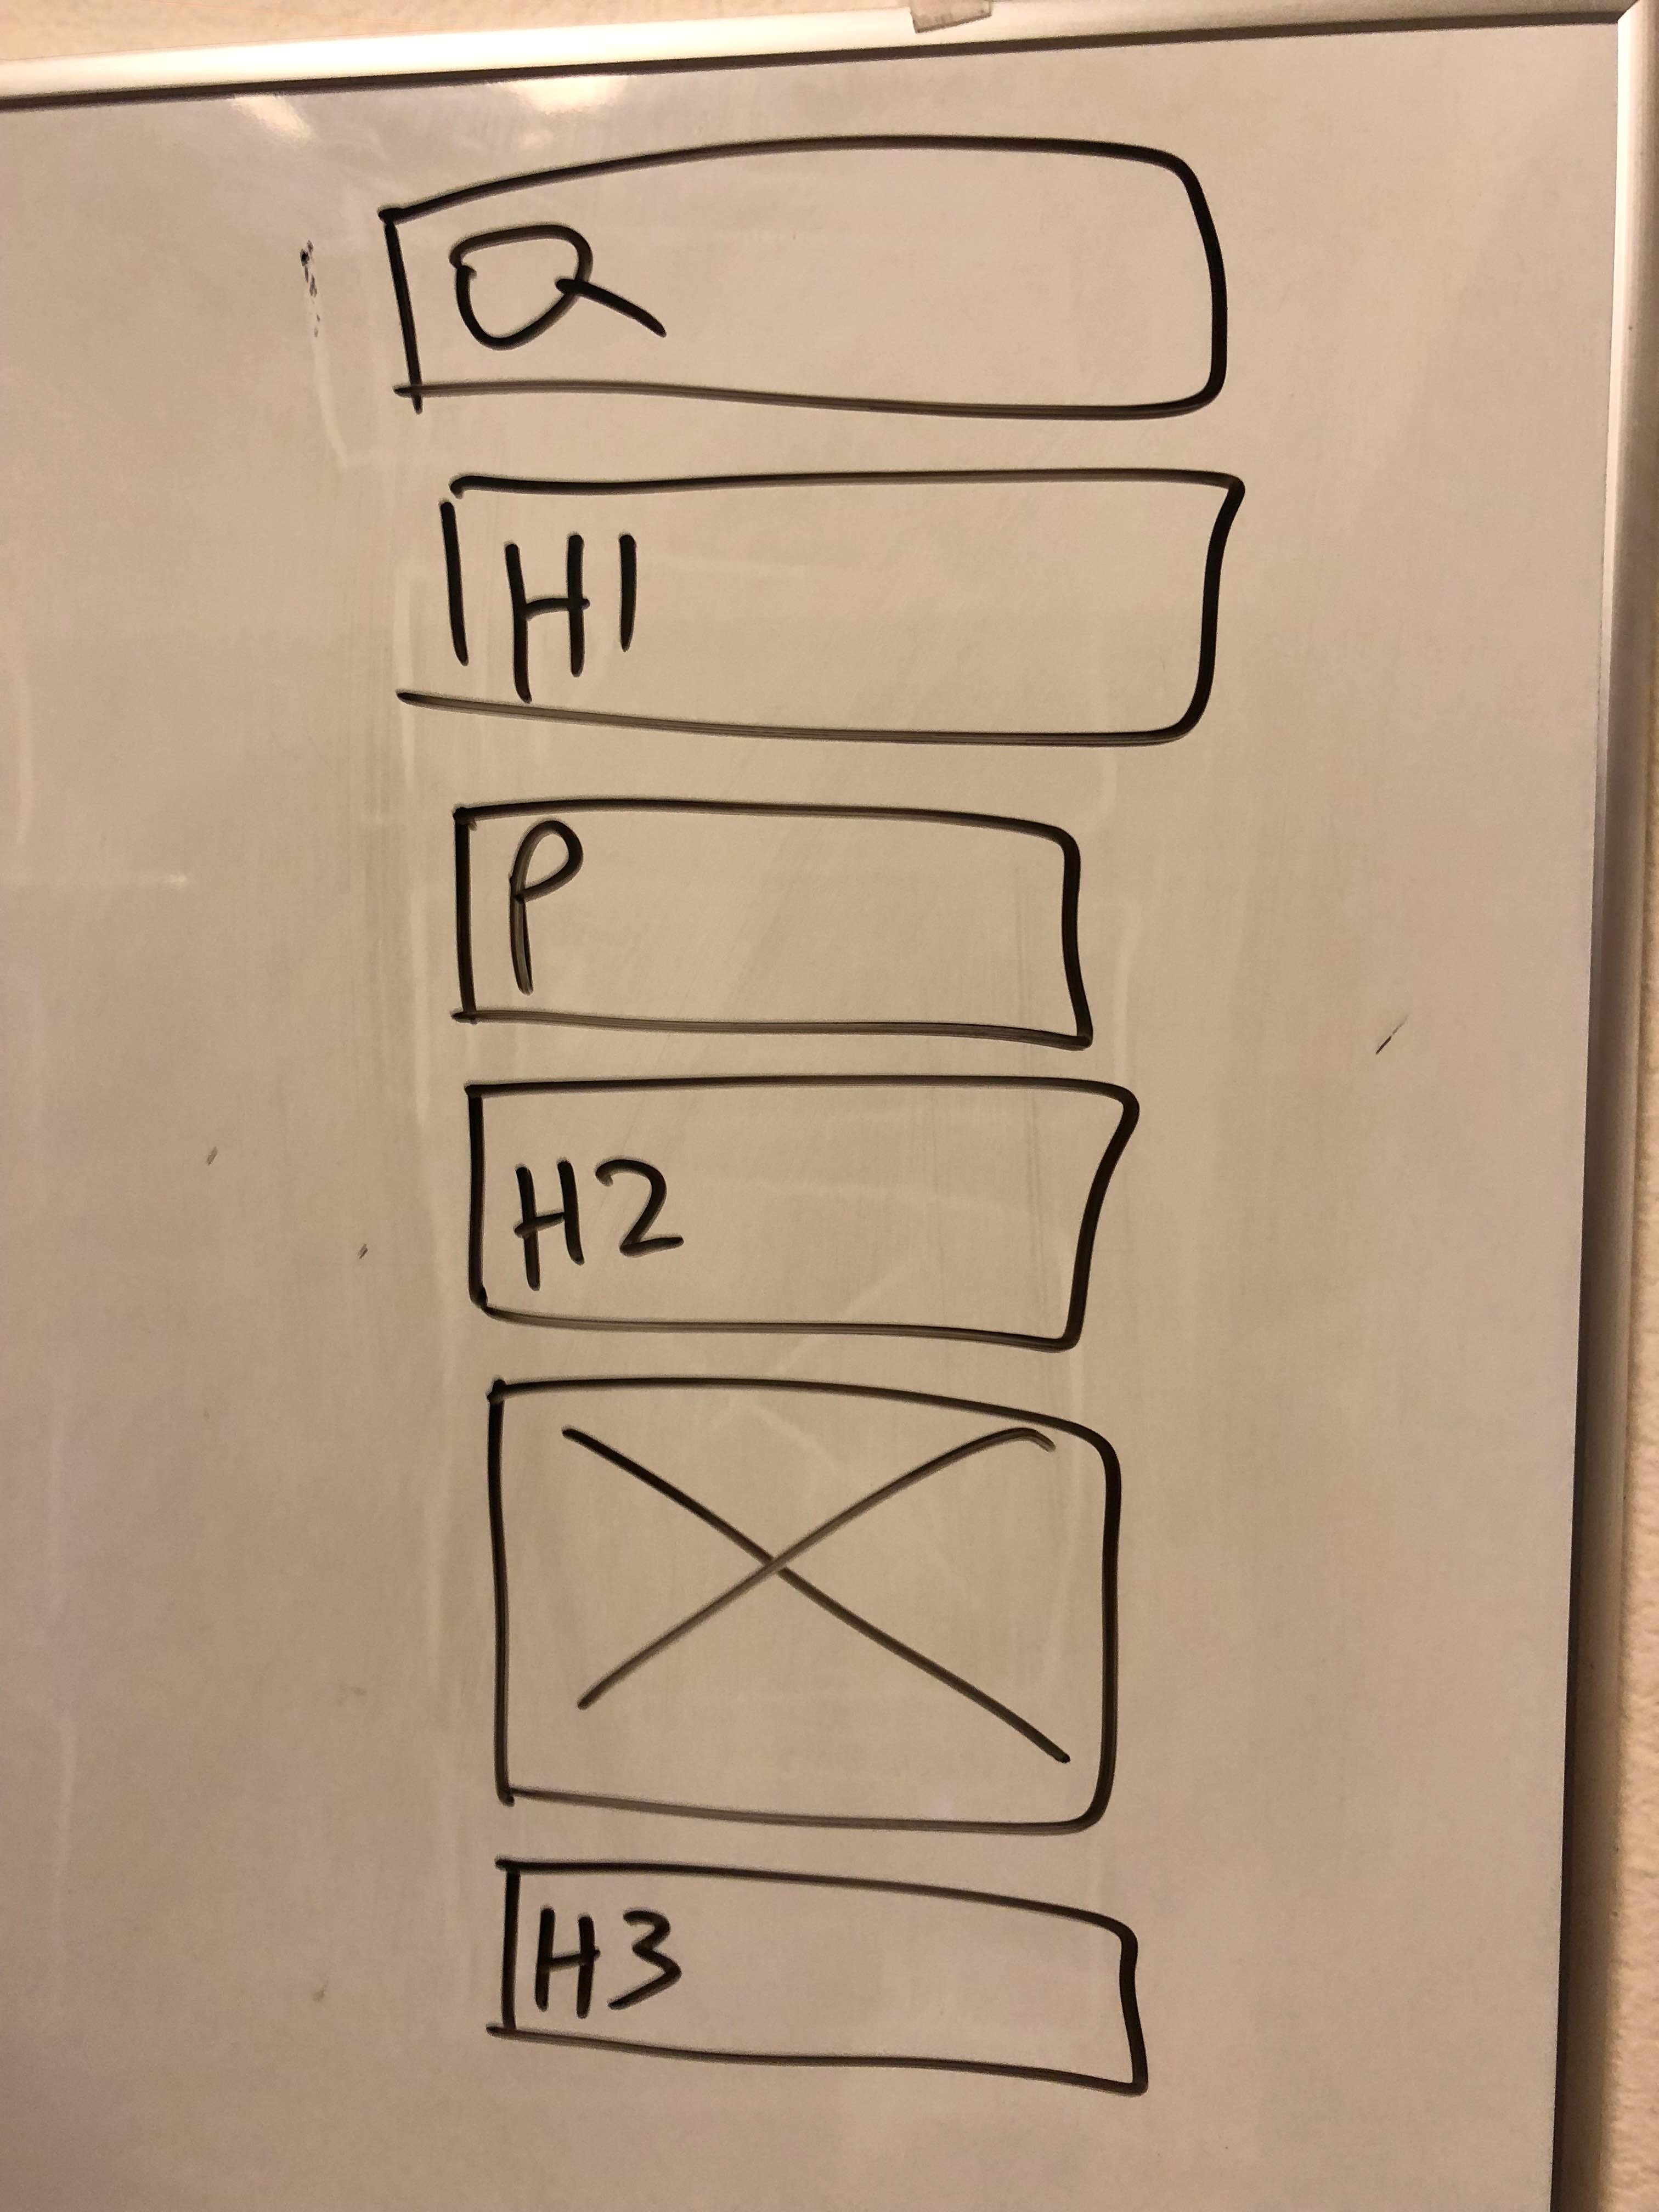 H1
P
H2
H3